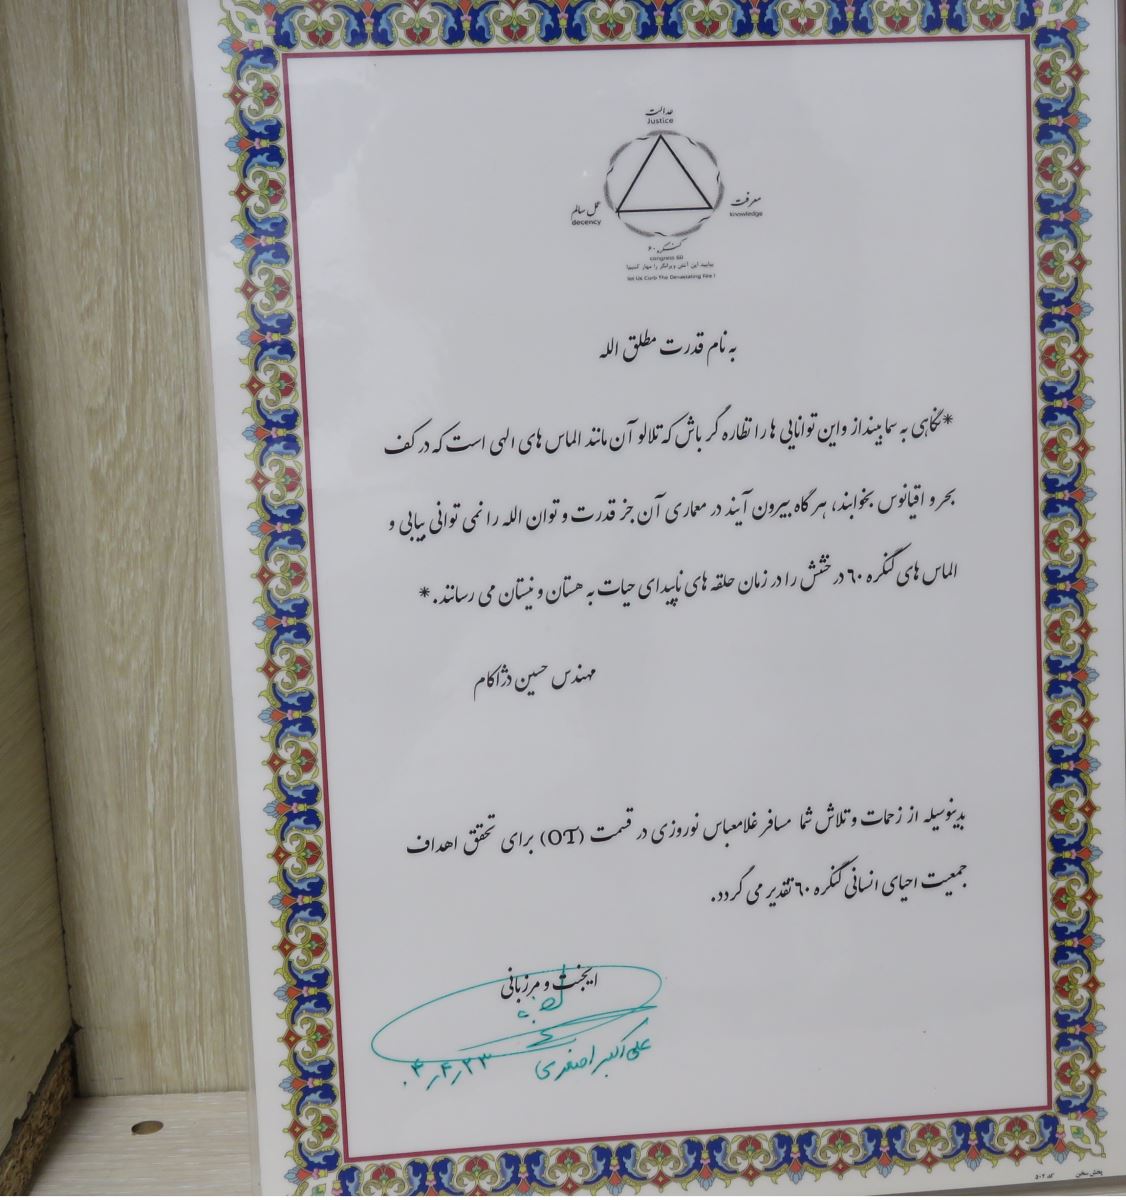 عدالت
Justice
معرفت
knowledge
عمل سالم
decency
کنگره ۶۰
congress 60
بیایید این آتش ویرانگر را مهار کنیم!
let Us Curb The Devastating Fire !
به نام قدرت مطلق الله
*نگاهی به سما بینداز واین توانایی ها را نظاره گر باش که تلالو آن مانند الماس های الهی است که در کف
بحر و اقیانوس بخوابند، هر گاه بیرون آیند در معماری آن جز قدرت و توان الله را نمی توانی بیابی و
الماس های کنگره ۶۰ درخشش را در زمان حلقه های ناپیدای حیات به هستان و نیستان می رسانند.*
مهندس حسین دژاکام
بدینوسیله از زحمات و تلاش شما مسافر غلامعباس نوروزی در قسمت (OT) برای تحقق اهداف
جمعیت احیای انسانی کنگره ۶۰ تقدیر می گردد.
ایجنت و مرزبانی
علی اکبر اصغری
۰۴,۴,۲۳
پخش سخن
کد ۵۰۲